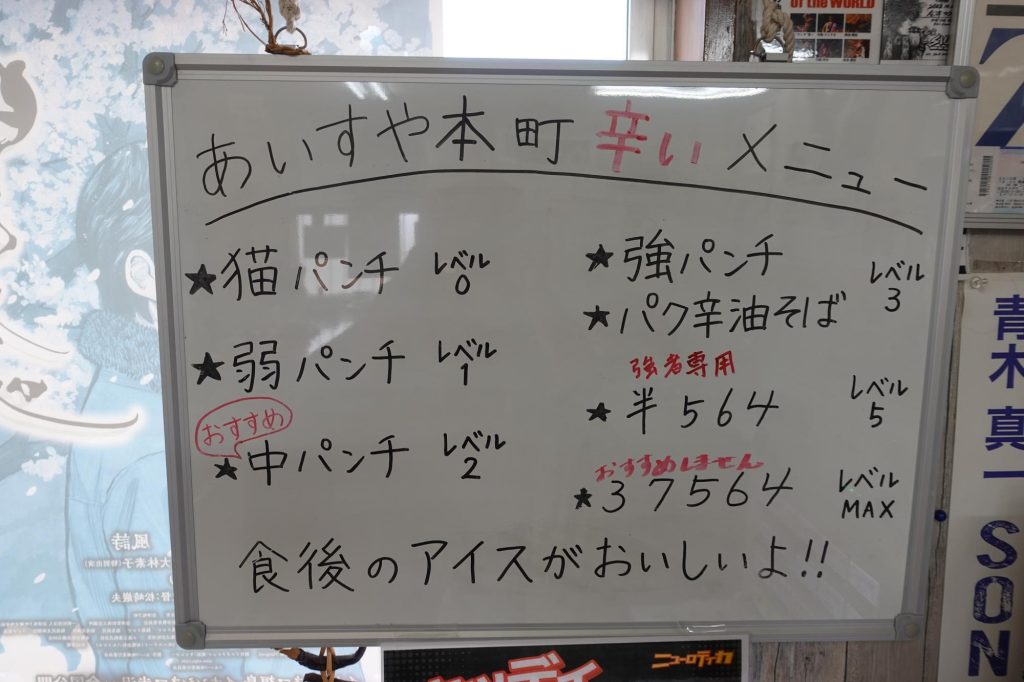 あいすや本町 辛いメニュー
★猫パンチ レベル 0
★弱パンチ レベル 1
おすすめ
★中パンチ レベル 2
★強パンチ
★パク辛油そば
レベル 3
強者専用
★半564 レベル 5
おすすめしません
★37564 レベル MAX
食後のアイスがおいしいよ!!
of the WORLD
青木真一
SON
風詩
大林素子(特別出演)
ニューロティカ